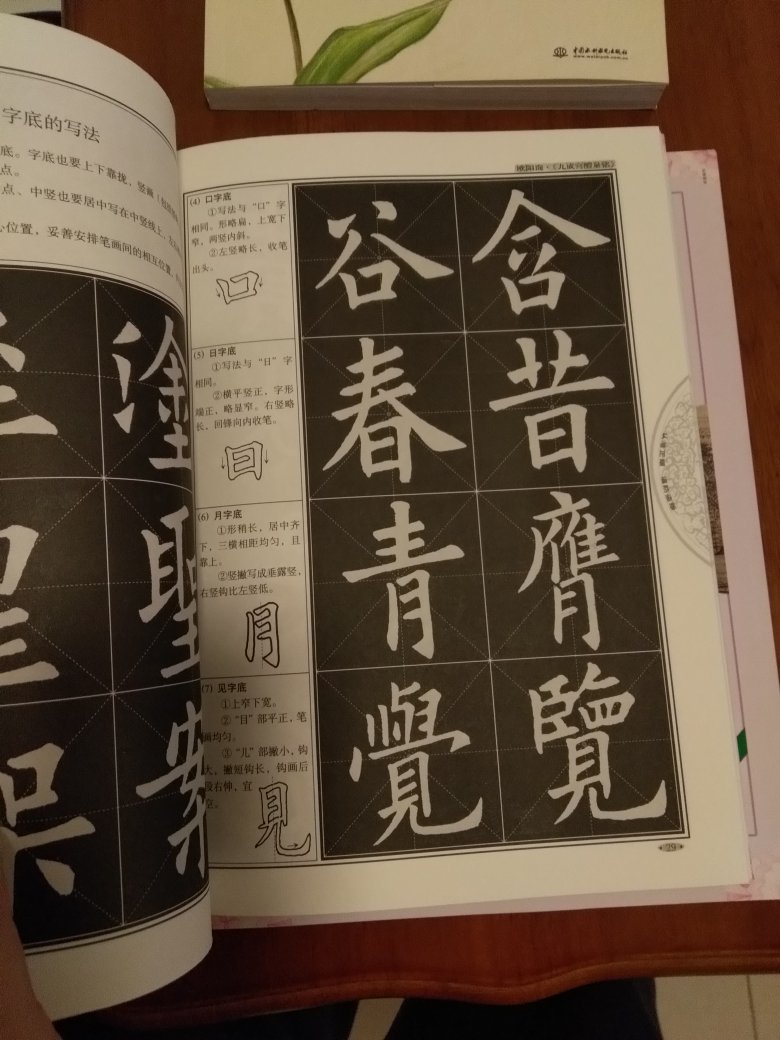 中国水利水电出版社
字底的写法
底。字底也要上下靠拢，竖画
点。
点、中竖也要居中写在中竖线上，左
心位置，妥善安排笔画间的相互位置，
塗
聖
案
欧阳询·《九成宫醴泉铭》
(4) 口字底
①写法与“口”字
相同。形略扁，上宽下
窄，两竖内斜。
②左竖略长，收笔
出头。
口
(5) 日字底
①写法与“日”字
相同。
②横平竖正，字形
端正，略显窄。右竖略
长，回锋向内收笔。
日
(6) 月字底
①形稍长，居中齐
下，三横相距均匀，且
靠上。
②竖撇写成垂露竖，
右竖钩比左竖低。
月
(7) 见字底
①上窄下宽。
②“目”部平正，笔
画均匀。
③“儿”部撇小，钩
大，撇短钩长，钩画后
段右伸，宜
見
谷 含
春 昔
青 膺
覺 覽
29